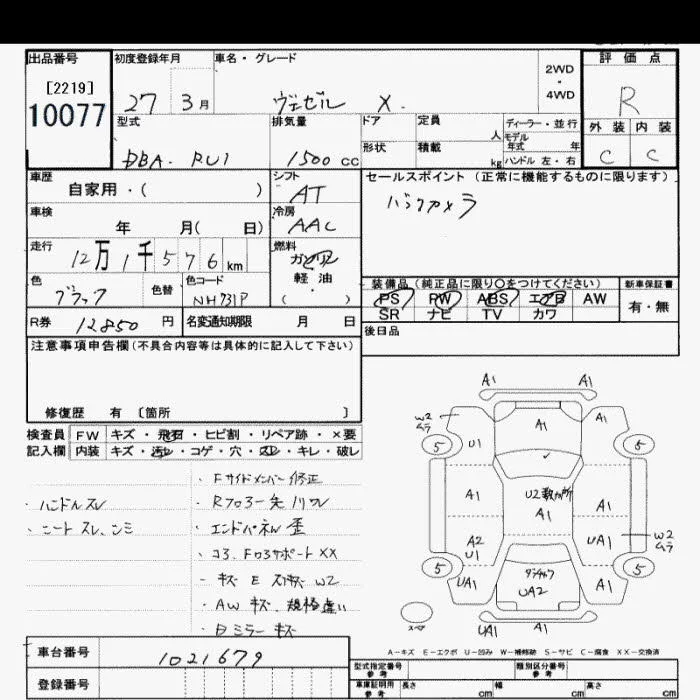 出品番号 初度登録年月 車名・グレード 評価点
[2219]
10077
27 3月 ヴェゼル X. 2WD ・ 4WD R
型式 排気量 ドア 定員 人 ディーラー・並行 外装 内装
モデル年式 年
DBA- RU1 1500cc 形状 積載 kg ハンドル 左・右 C C
車歴 シフト セールスポイント (正常に機能するものに限ります)
自家用・( ) AT バックカメラ
車検 冷房
年 月( 日) AAC
走行 燃料
12万1千576km ガソリン
軽油
( ・ )
色 色替 色コード 装備品(純正品に限り○をつけてください) 新車保証書
ブラック NH731P PS PW ABS エアB AW 有・無
SR ナビ TV カワ
R券 12850円 名変通知期限 月 日 後日品
注意事項申告欄(不具合内容等は具体的に記入して下さい)
修復歴 有 〔箇所 〕
検査員 FW キズ・飛石・ヒビ割・リペア跡・×要
記入欄 内装 キズ・汚レ・コゲ・穴・スレ・キレ・破レ
・Fサイドメンバー修正
・ハンドルスレ
・シート スレ、シミ
・エンドパネル歪
・コS、FロSサポートXX
・キズ E W2
・AW キズ、規格違い
・Bミラー キズ
A1 A1
W2 ムラ A1 A1
5 U1 5
A1 U2数ヵ所 A1
A1
A2 U1 UA1 W2 ムラ
5 5
UA1 UA2 A1
スペア UA1 A1
A-キズ E-エクボ U-凹み W-補修跡 S-サビ C-腐食 XX-交換済
車台番号 1021679
登録番号
型式指定番号 参考 類別区分番号 参考
車庫証明用 参考 長さ cm 幅 cm 高さ cm